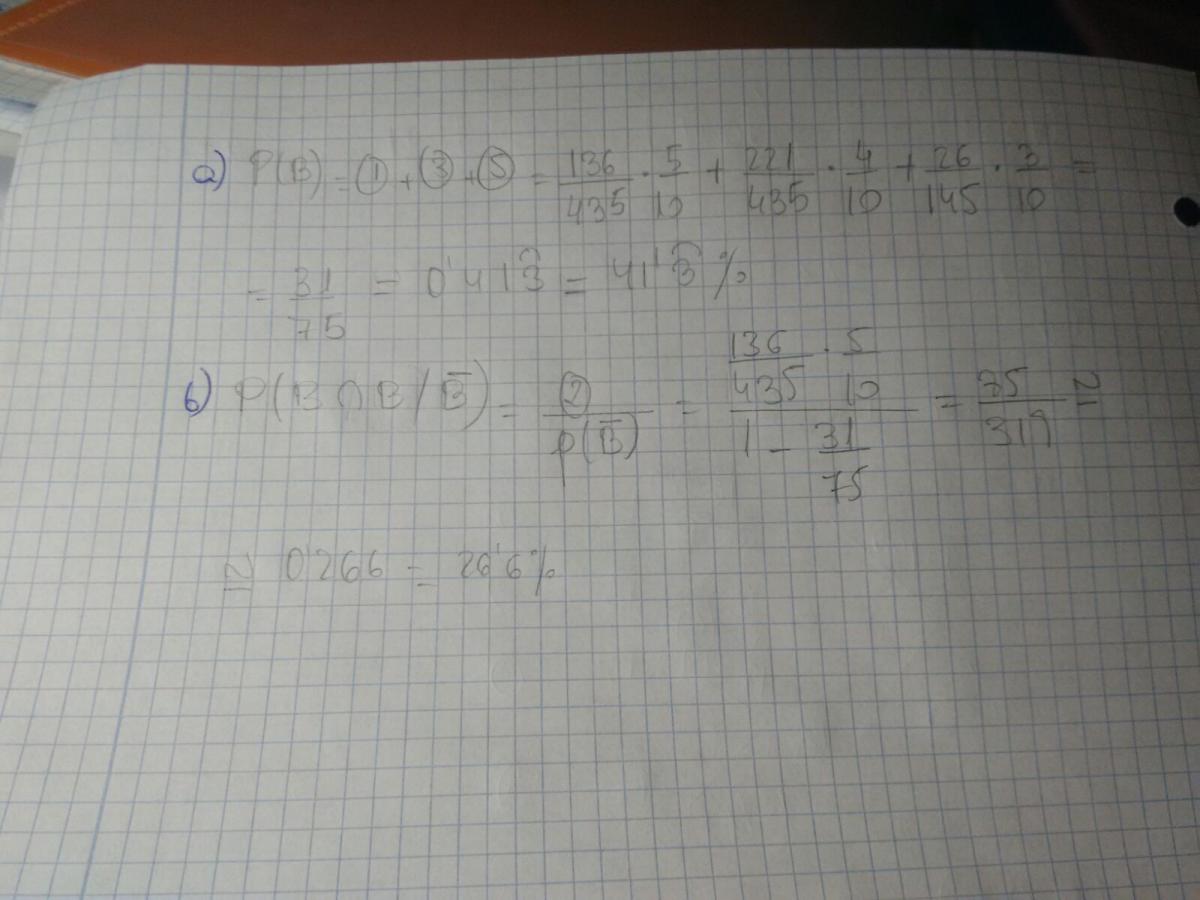 a) P(B) = ① + ③ + ⑤ = 136/435 · 5/10 + 221/435 · 4/10 + 26/145 · 3/10 =
= 31/75 = 0'413̂ = 41'3̂ %
b) P(B∩B/B̅) = ②/p(B̅) = (136/435 · 5/10)/(1 - 31/75) = 85/319 ≅
≅ 0'266 = 26'6%